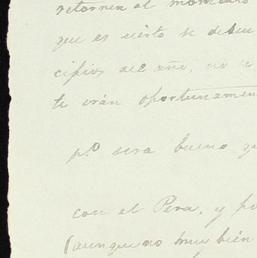 retornen al momento
que es cierto se deben
cipios del año, no se
te irán oportunamen
pº sera bueno q
con el Pera, y po
(aunque no muy bién